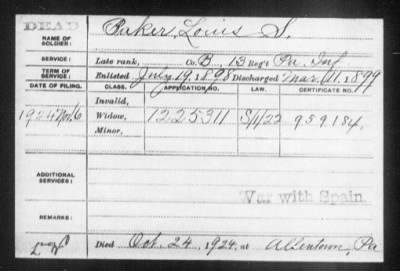 DEAD
NAME OF SOLDIER: Baker, Louis S.
SERVICE: Late rank, Co. B, 13 Reg't Pa. Inf
TERM OF SERVICE: Enlisted July 19, 1898 Discharged Mar. 11, 1899
DATE OF FILING. CLASS. APPLICATION NO. LAW. CERTIFICATE NO.
Invalid,
1924 Nov. 6 Widow, 1225311 S/1/22 959184,
Minor,
ADDITIONAL SERVICES:
War with Spain.
REMARKS:
Died Oct. 24, 1924, at Allentown, Pa